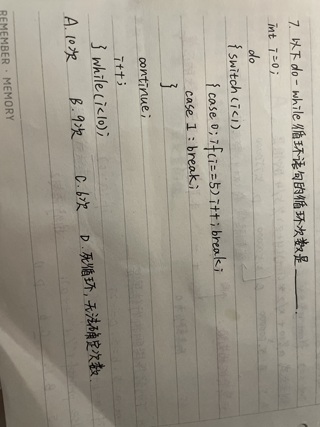 7. 以下do-while循环语句的循环次数是____.
int i=0;
do
{ switch(i<1)
{ case 0; if(i==5) i++; break;
case 1: break;
}
continue;
i++;
} while(i<10);
A.10次 B.9次 C.6次 D.死循环,无法确定次数
REMEMBER · MEMORY